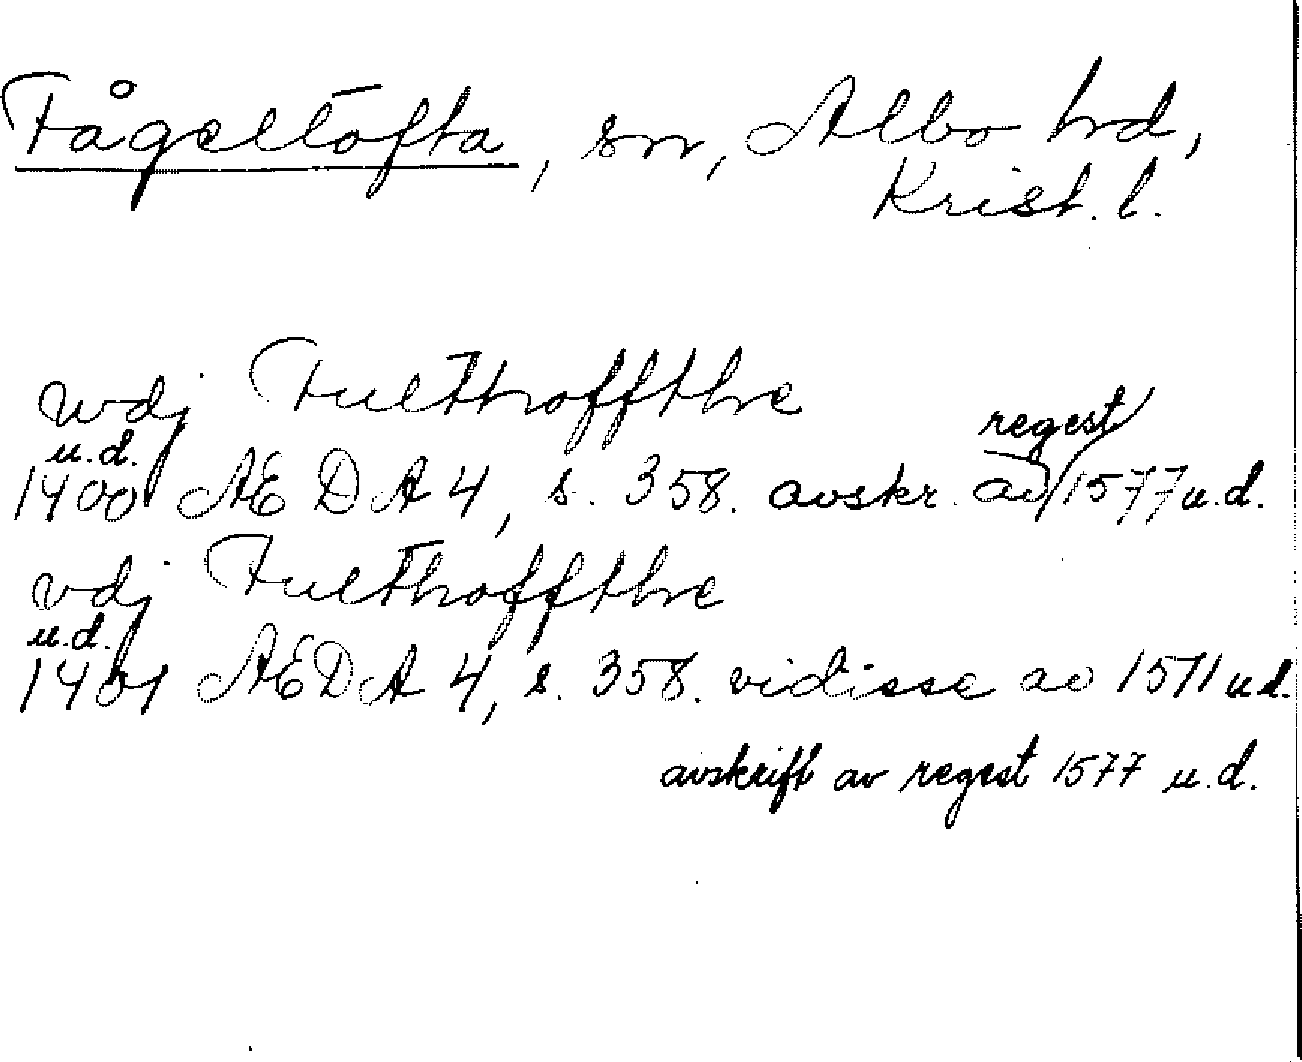 Fågeltofta, sn, Albo hd,
Krist. l.
wdj Fultthoffthe
u.d.
1400 AEDA 4, s. 358. avskr. av regest 1577 u.d.
vdj Fulthoffthe
u.d.
1401 AEDA 4, s. 358. vidisse av 1511 u.d.
avskrift av regest 1577 u.d.